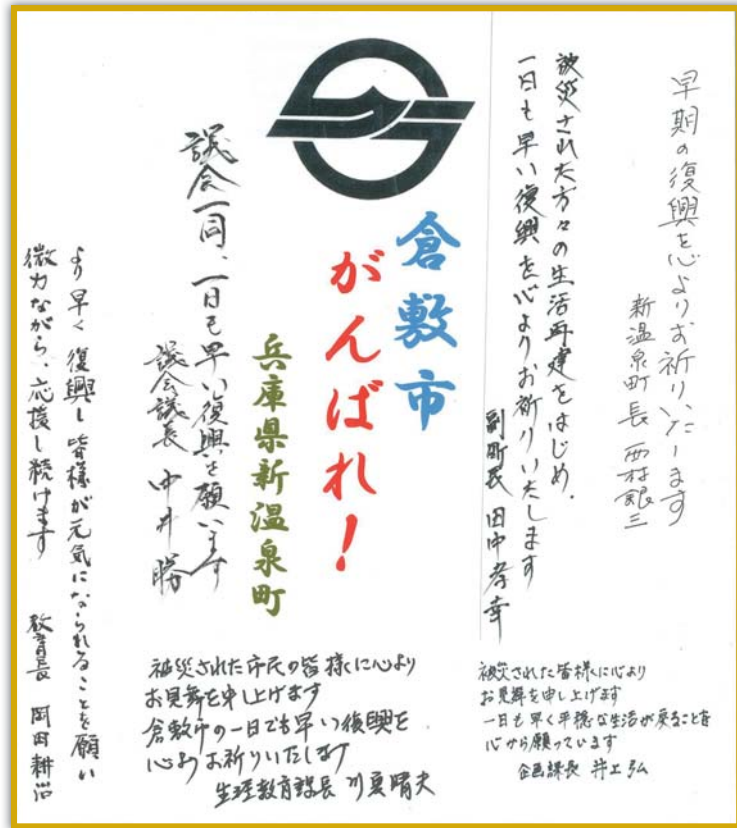 早期の復興を心よりお祈りいたします
新温泉町長 西村銀三
被災された方々の生活再建をはじめ、
一日も早い復興を心よりお祈りいたします
副町長 田中孝幸
倉敷市
がんばれ！
兵庫県新温泉町
議会一同、一日も早い復興を願います
議会議長 中井勝
より早く復興し皆様が元気になられることを願い
微力ながら、応援し続けます
教育長 岡田耕治
被災された市民の皆様に心より
お見舞を申し上げます
倉敷市の一日でも早い復興を
心よりお祈りいたします
教育課長 川夏晴夫
被災された皆様に心より
お見舞を申し上げます
一日も早く平穏な生活が戻ることを
心から願っています
企画課長 井上弘